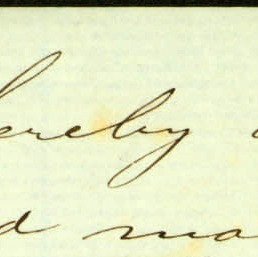 hereby
d ma